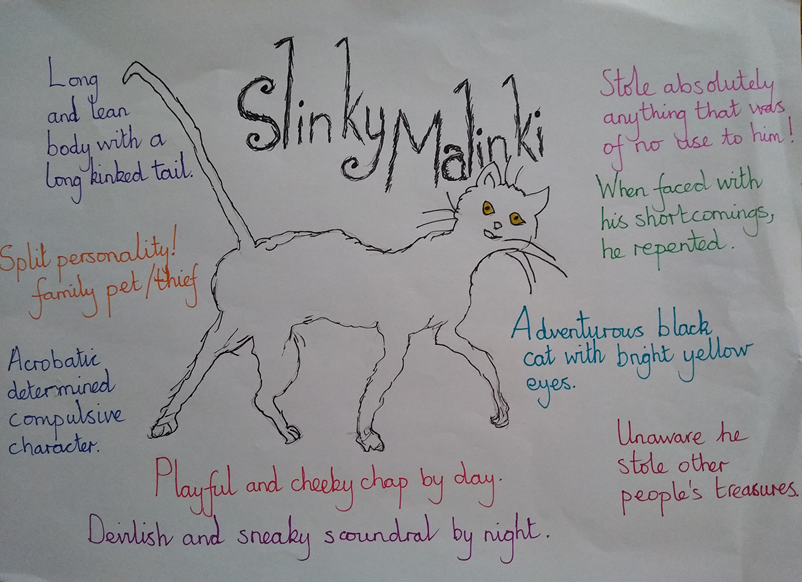 Slinky Malinki
Long
and lean
body with a
long kinked tail.
Split personality!
family pet/thief
Acrobatic
determined
compulsive
character.
Stole absolutely
anything that was
of no use to him!
When faced with
his shortcomings,
he repented.
Adventurous black
cat with bright yellow
eyes.
Unaware he
stole other
people's treasures.
Playful and cheeky chap by day.
Devilish and sneaky scoundral by night.